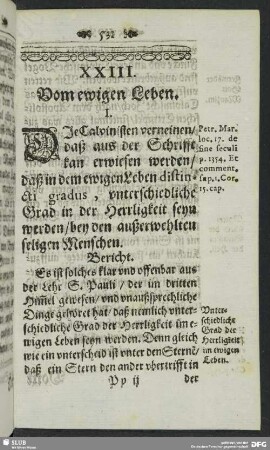 532
XXIII.
Vom ewigen Leben.
I.
DIe Calvinisten verneinen/
daß aus der Schrifft
kan erwiesen werden/
daß in dem ewigen Leben distin-
cti gradus, vnterschiedliche
Grad in der Herrligkeit seyn
werden/ bey den außerwehlten
seligen Menschen.
Petr. Mar.
loc. 17. de
fine seculi
p. 1354. Et
comment.
sup. 1. Cor.
15. cap.
Bericht.
Es ist solches klar vnd offenbar aus
der Lehr S. Pauli/ der im dritten
Him̄el gewesen/ vnd vnaußsprechliche
Dinge gehöret hat/ daß nemlich vnter-
schiedliche Grad der Herrligkeit im e-
wigen Leben seyn werden. Denn gleich
wie ein vnterscheid ist vnter den Sternē/
daß ein Stern den ander vbertrifft in
Vnter-
schiedliche
Grad der
Herrligkeit
im ewigen
Leben.
Yy ij
der
SLUB
DFG